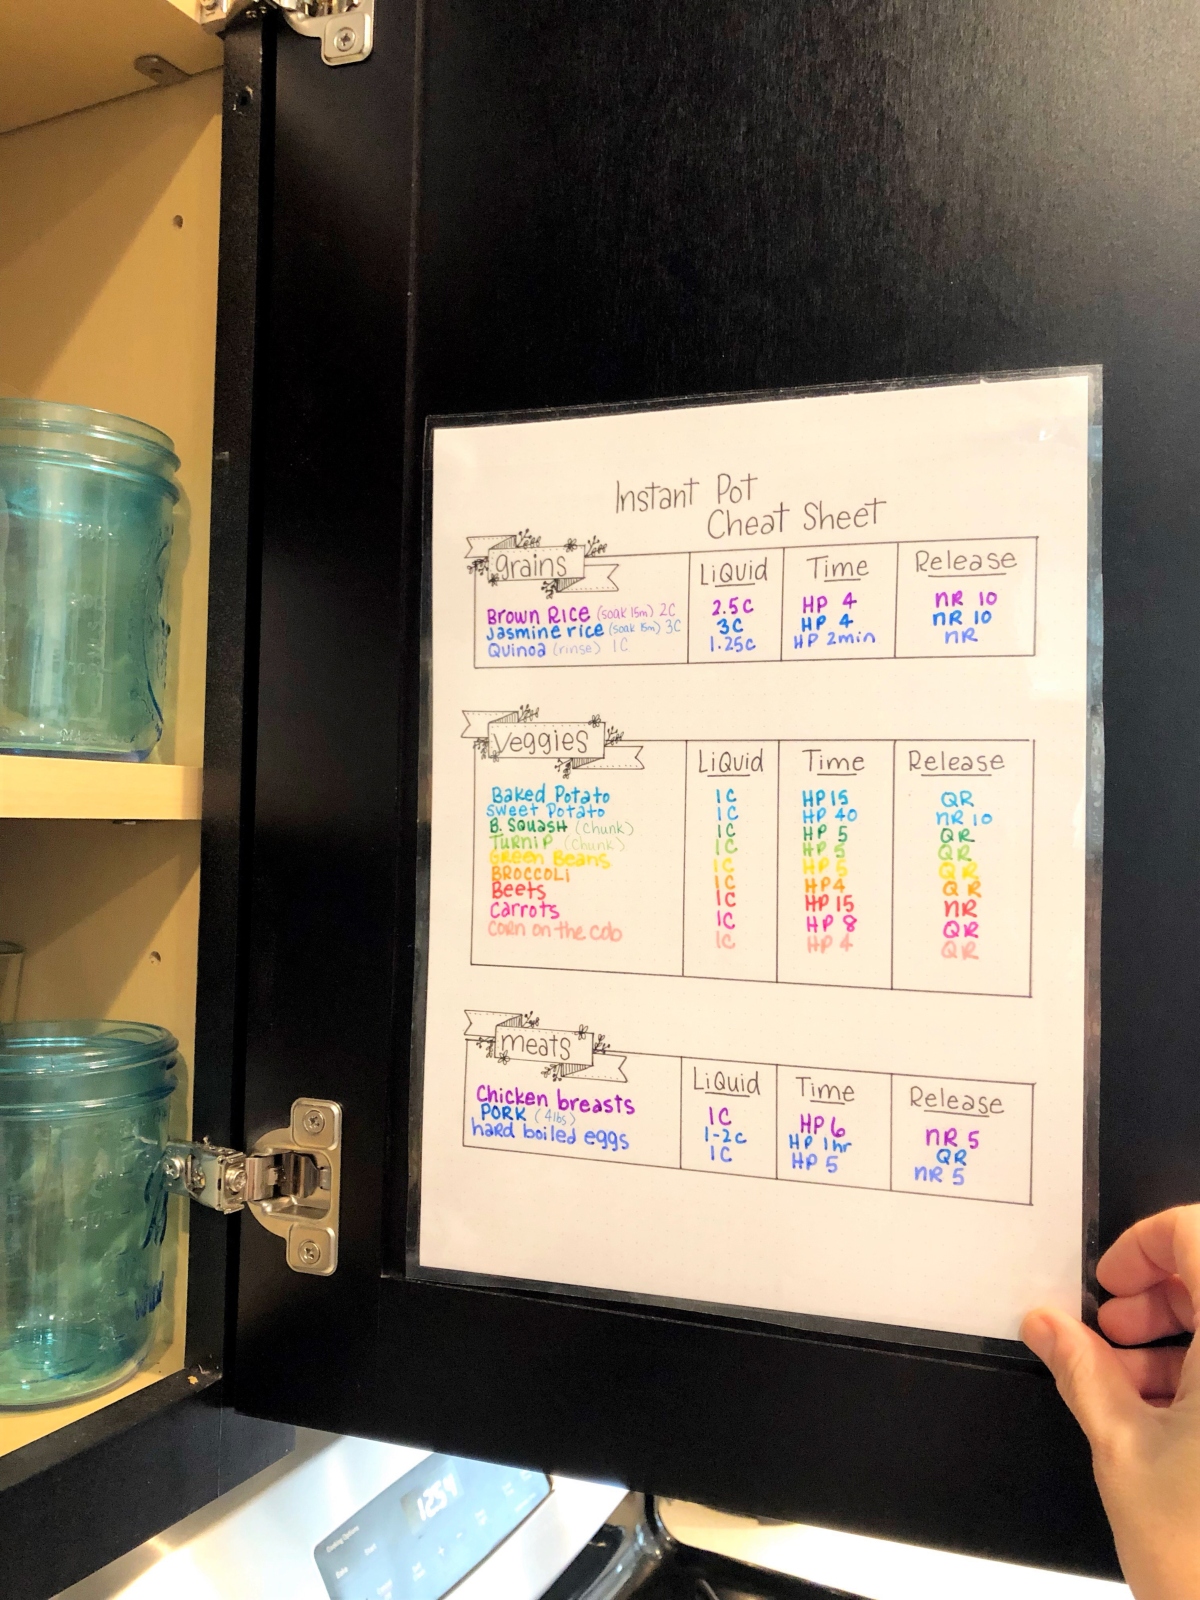 Instant Pot
Cheat Sheet
grains LiQuid Time Release
Brown Rice (soak 15m) 2C 2.5C HP 4 nR 10
Jasmine rice (soak 15m) 3C 3C HP 4 nR 10
Quinoa (rinse) 1C 1.25c HP 2min nR
veggies LiQuid Time Release
Baked Potato 1C HP 15 QR
sweet Potato 1C HP 40 nR 10
B. SQuasH (chunk) 1C HP 5 QR
TurniP (chunk) 1C HP 5 QR
Green Beans 1C HP 5 QR
BROCCOLi 1C HP 4 QR
Beets 1C HP 15 nR
carrots 1C HP 8 QR
corn on the cob 1C HP 4 QR
meats LiQuid Time Release
Chicken breasts 1C HP 6 nR 5
PORK (4lbs) 1-2c HP 1hr QR
hard boiled eggs 1C HP 5 nR 5
1254
Cooking Options
Bake